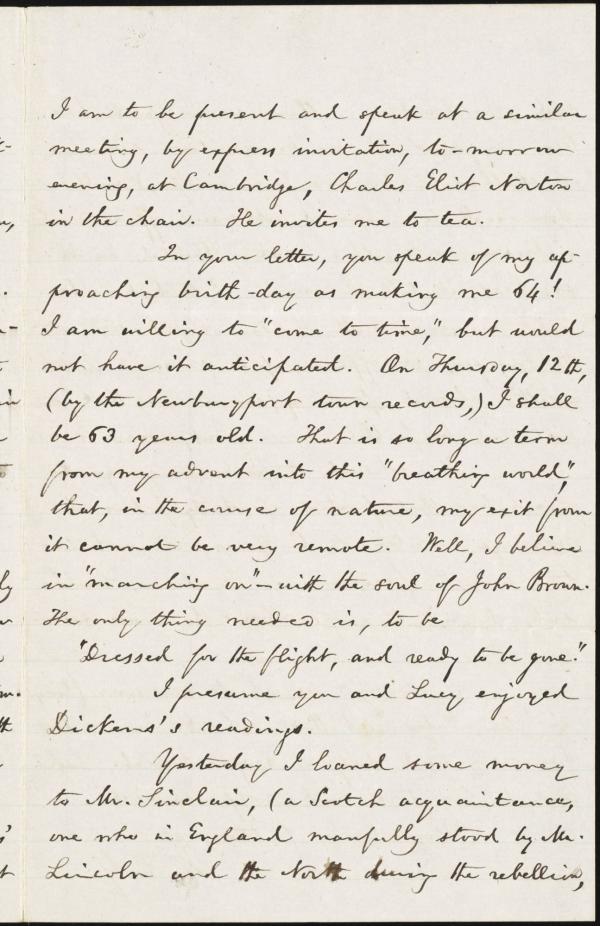 I am to be present and speak at a similar
meeting, by express invitation, to-morrow
evening, at Cambridge, Charles Eliot Norton
in the chair. He invites me to tea.
In your letter, you speak of my ap-
proaching birth-day as making me 64!
I am willing to "come to time," but would
not have it anticipated. On Thursday, 12th,
(by the Newburyport town records,) I shall
be 63 years old. That is so long a term
from my advent into this "breathing world,"
that, in the course of nature, my exit from
it cannot be very remote. Well, I believe
in "marching on"—with the soul of John Brown.
The only thing needed is, to be
"Dressed for the flight, and ready to be gone."
I presume you and Lucy enjoyed
Dickens's readings.
Yesterday I loaned some money
to Mr. Sinclair, (a Scotch acquaintance,
one who in England manfully stood by Mr.
Lincoln and the North during the rebellion,